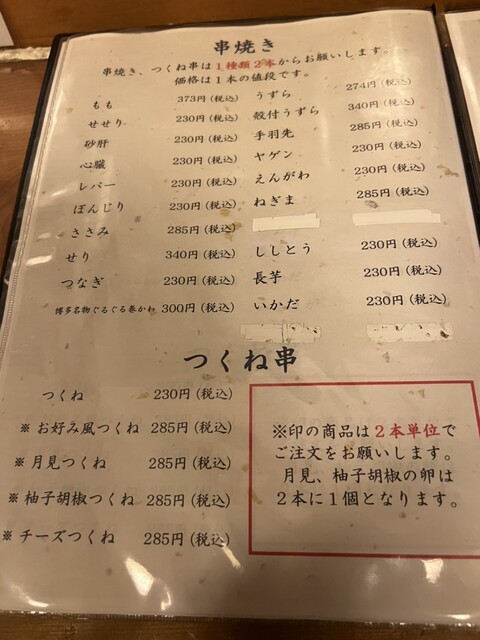 串焼き
串焼き、つくね串は1種類2本からお願いします。
価格は1本の値段です。
もも 373円(税込)
せせり 230円(税込)
砂肝 230円(税込)
心臓 230円(税込)
レバー 230円(税込)
ぼんじり 230円(税込)
ささみ 285円(税込)
せり 340円(税込)
つなぎ 230円(税込)
博多名物ぐるぐる巻かわ 300円(税込)
うずら 274円(税込)
殻付うずら 340円(税込)
手羽先 285円(税込)
ヤゲン 230円(税込)
えんがわ 230円(税込)
ねぎま 285円(税込)
ししとう 230円(税込)
長芋 230円(税込)
いかだ 230円(税込)
つくね串
つくね 230円(税込)
※お好み風つくね 285円(税込)
※月見つくね 285円(税込)
※柚子胡椒つくね 285円(税込)
※チーズつくね 285円(税込)
※印の商品は2本単位で
ご注文をお願いします。
月見、柚子胡椒の卵は
2本に1個となります。